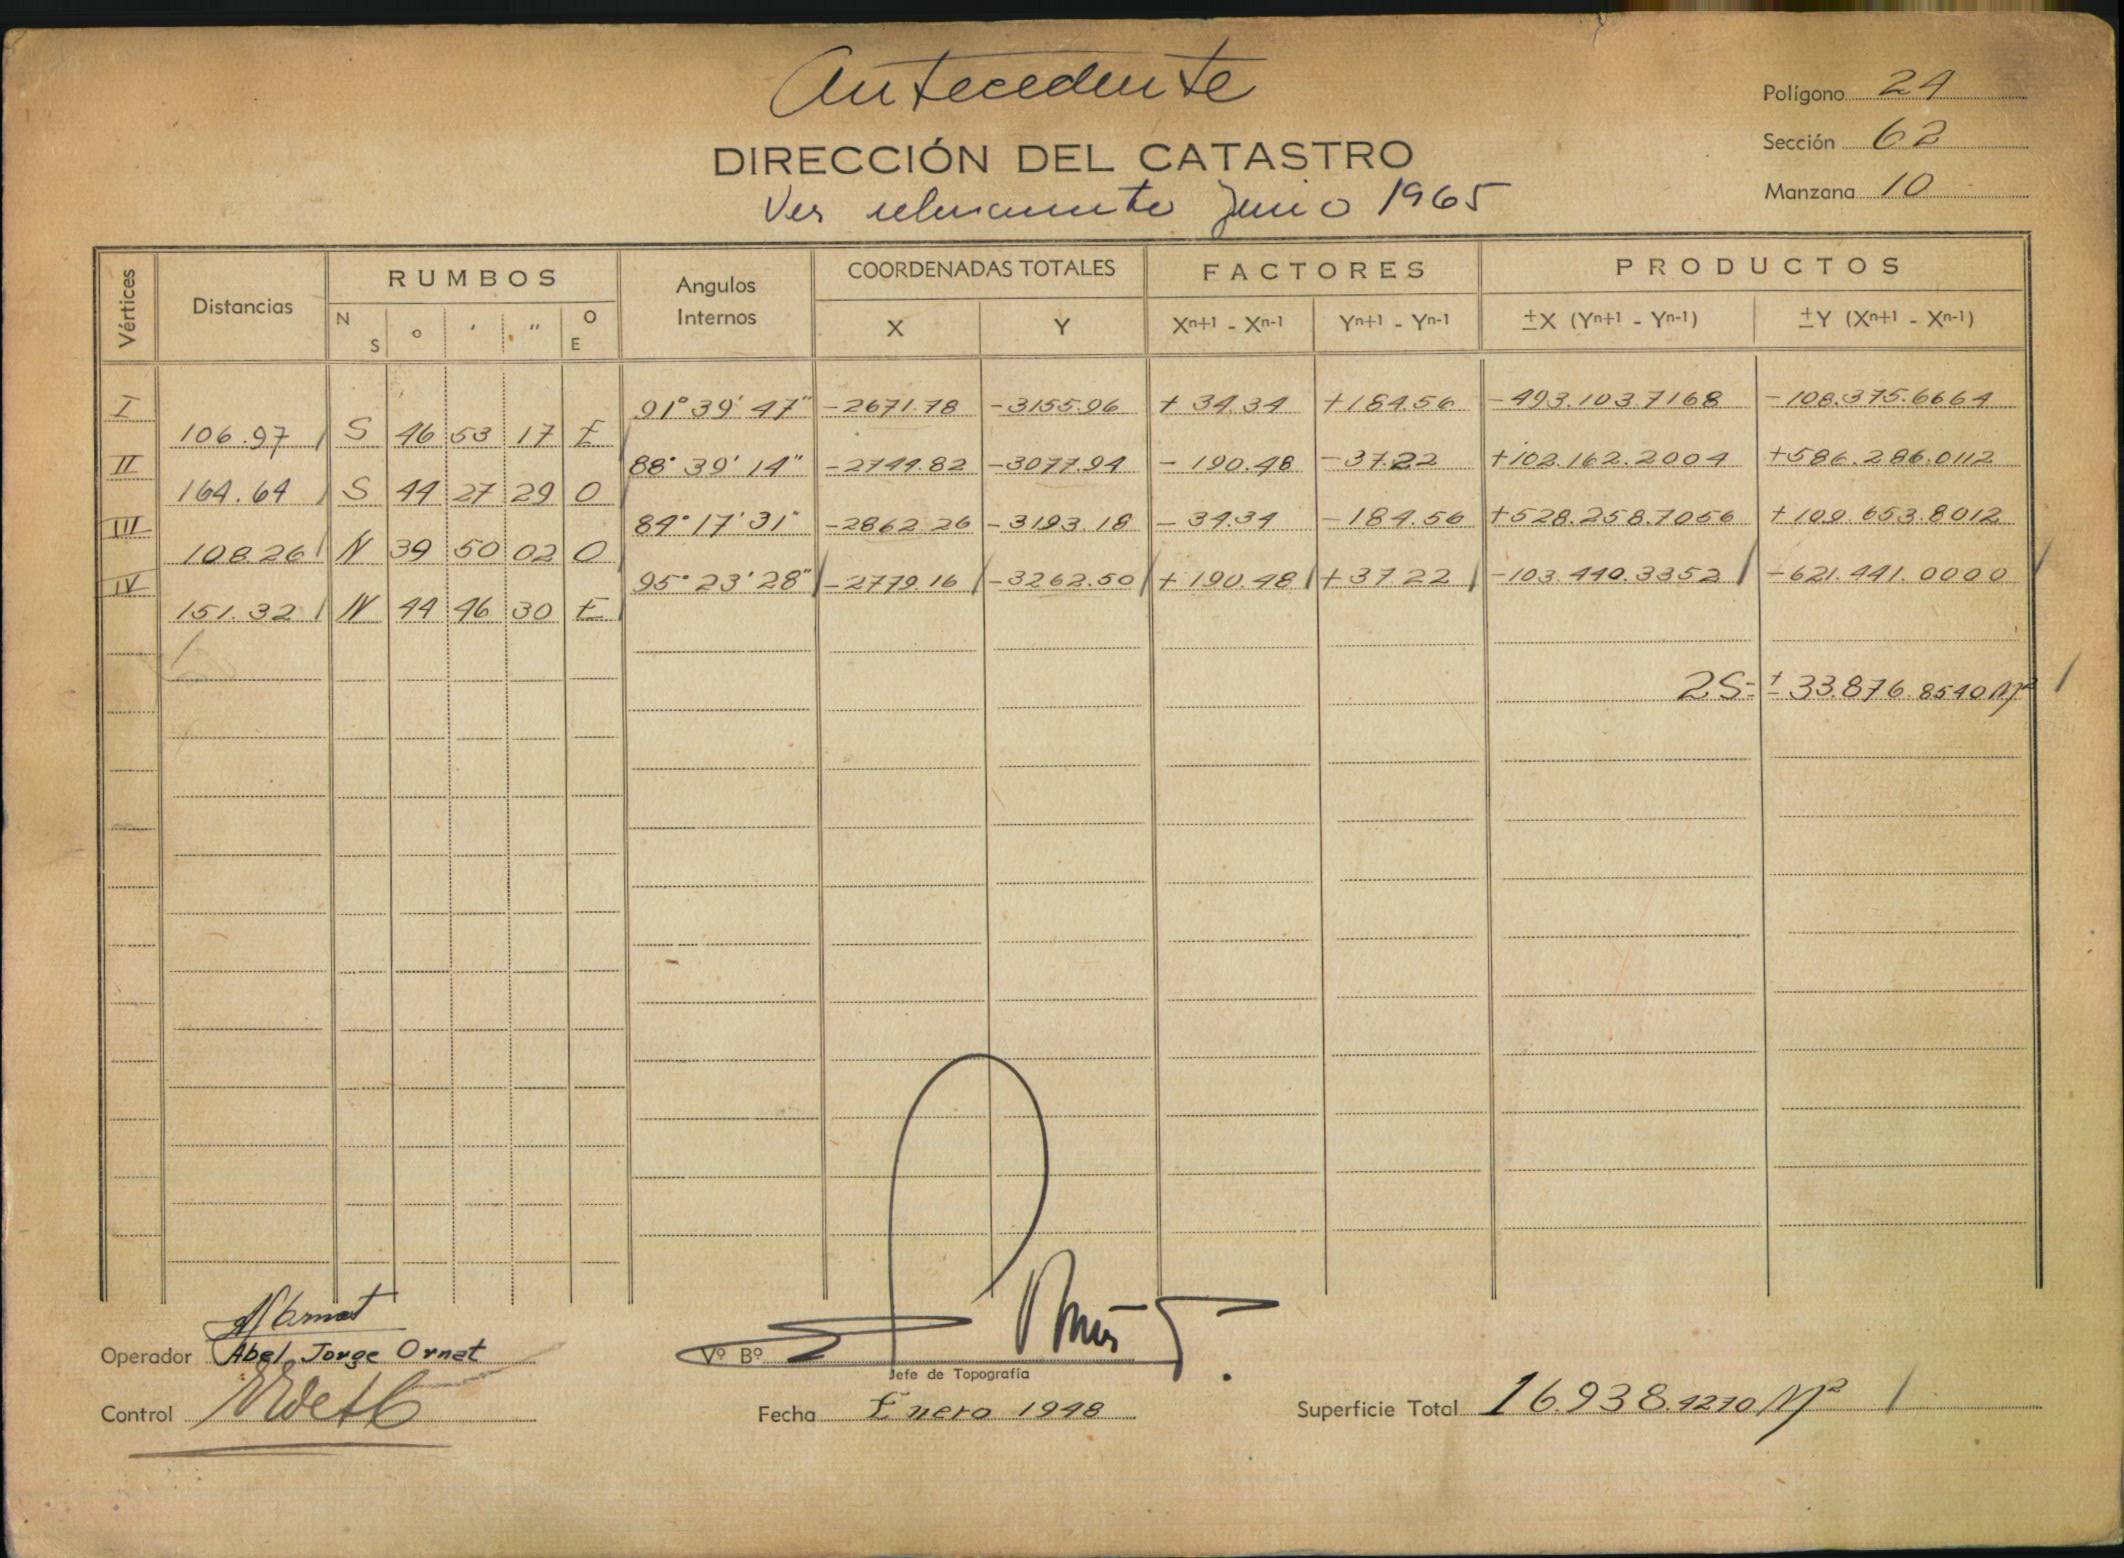 Antecedente
DIRECCIÓN DEL CATASTRO
Ver relevamiento Junio 1965
Polígono 24
Sección 62
Manzana 10
Vértices Distancias RUMBOS Angulos Internos COORDENADAS TOTALES FACTORES PRODUCTOS
N S ° ' " O E X Y Xn+1 - Xn-1 Yn+1 - Yn-1 ±X (Yn+1 - Yn-1) ±Y (Xn+1 - Xn-1)
I 91° 39' 47" -2671.78 -3155.96 + 34.34 +184.56 -493.103.7168 -108.375.6664
106.97 S 46 53 17 E
II 88° 39' 14" -2744.82 -3077.94 - 190.48 -37.22 +102.162.2004 +586.286.0112
164.64 S 44 27 29 O
III 84° 17' 31" -2862.26 -3193.18 - 34.34 -184.56 +528.258.7056 +109.653.8012
108.26 N 39 50 02 O
IV 95° 23' 28" -2779.16 -3262.50 +190.48 +37.22 -103.440.3352 -621.441.0000
151.32 N 44 46 30 E
2S= ± 33.876.8540 M²
Operador Abel Jorge Ornat
Vº Bº
Jefe de Topografía
Control
Fecha Enero 1948
Superficie Total 16.938.4270 M²